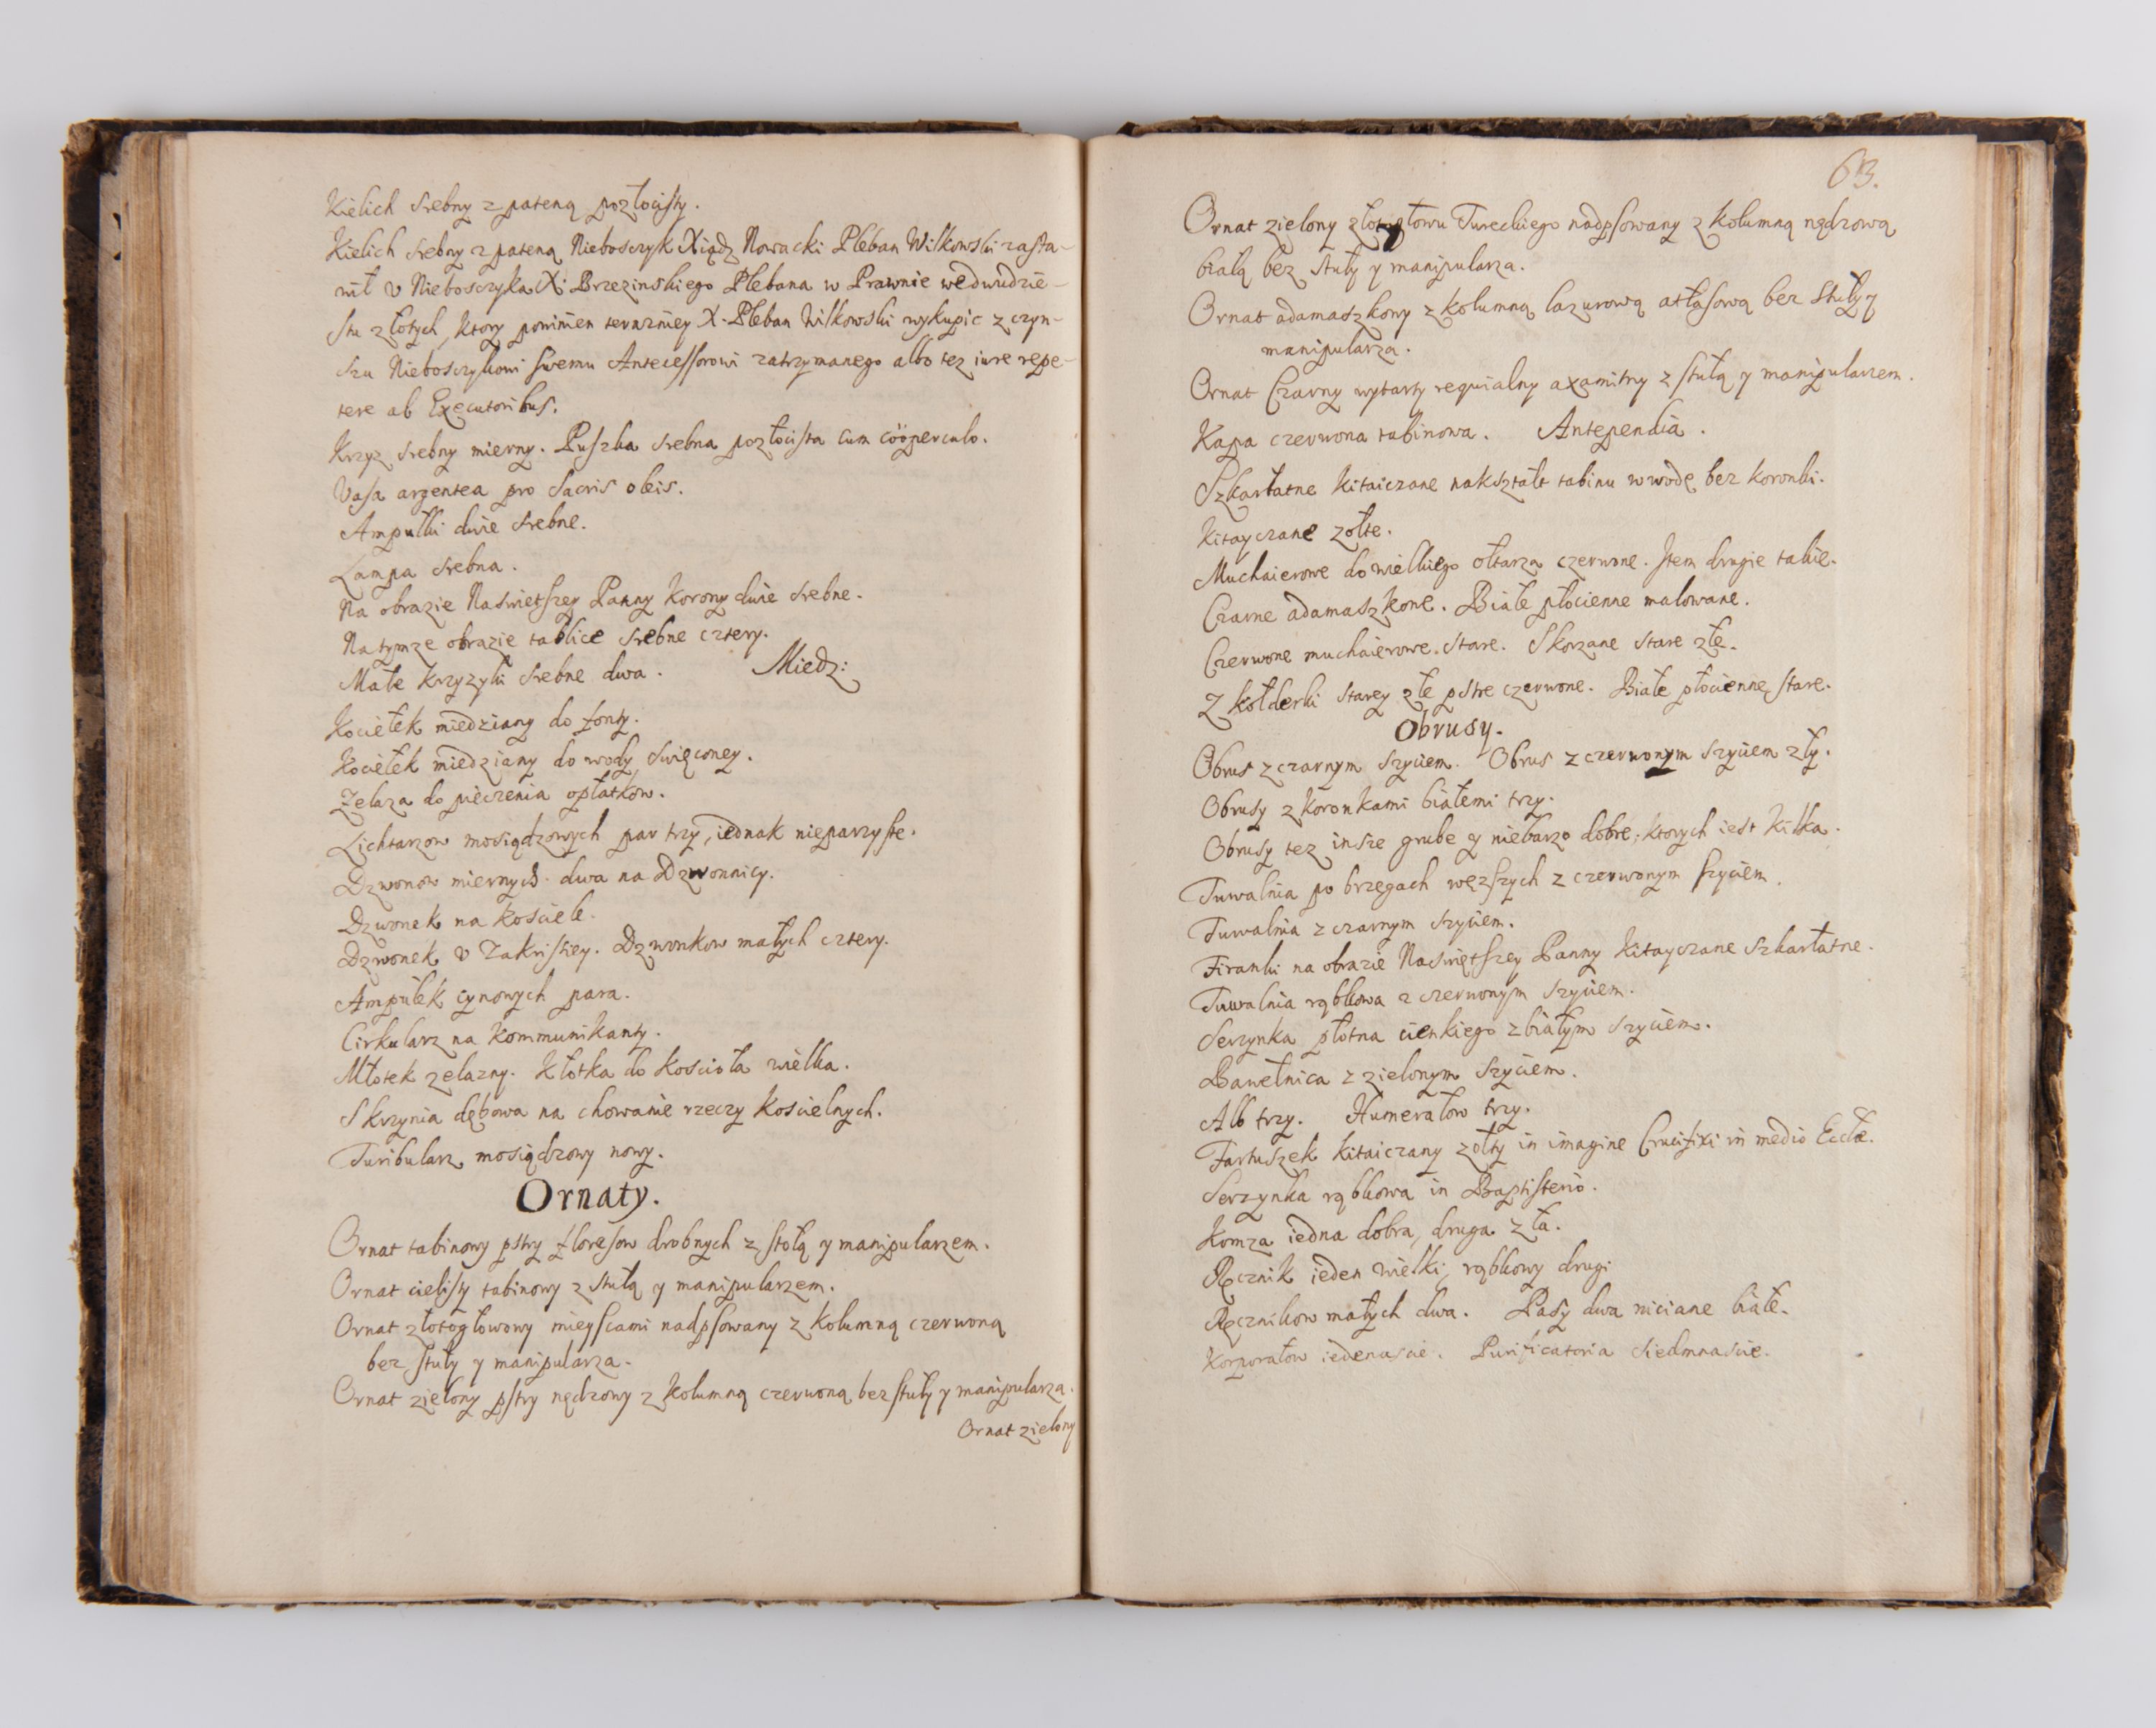 Kielich srebny z pateną pozłocisty.
Kielich srebny z pateną Nieboszczyk Xiądz Nowacki Pleban Wilkowski zasta-
wił v Nieboszczyka X. Brzezinskiego Plebana w Prawnie wedwudzie-
stu złotych, ktory powinien teraznieÿ X. Pleban Wilkowski wykupic z czyn-
szu Nieboszczykowi swemu Antecessorowi zatrzymanego albo tez iure repe-
tere ab Executoribus.
Krzyz srebny mierny. Puszka srebna pozłocista cum cooperculo.
Vasa argentea pro sacris oleis.
Ampułki dwie srebne.
Lampa srebna.
Na obrazie Naswietszey Panny korony dwie srebne.
Natymze obrazie tablice srebne cztery.
Małe krzyzyki srebne dwa. Miedz:
Kociełek miedziany do fonty.
Kociełek miedziany do wody swięconey.
Zelaza do pieczenia opłatkow.
Lichtarzow mosiądzowych par trzy, iednak nieparzyste.
Dzwonow miernych dwa na Dzwonnicy.
Dzwonek na kosciele.
Dzwonek v Zakristiey. Dzwonkow małych cztery.
Ampułek cynowych para.
Cirkularz na kommunikanty.
Młotek zelazny. Kłotka do koscioła wielka.
Skrzynia dębowa na chowanie rzeczy koscielnych.
Turibularz mosiądzowy nowy.
Ornaty.
Ornat tabinowy pstry floresow drobnych z stołą y manipularzem.
Ornat cielisty tabinowy z stułą y manipularzem.
Ornat złotogłowowy mieyscami nadpsowany z kolumną czerwoną
bez stuły y manipularza.
Ornat zielony pstry nędzowy z kolumną czerwoną bez stuły y manipularza.
Ornat zielony
63.
Ornat zielony złotogłowu Tureckiego nadpsowany z kolumną nędzową
białą bez stuły y manipularza.
Ornat adamaszkowy z kolumną lazurową atłasową bez stuły y
manipularza.
Ornat Czarny wytarty requialny axamitny z stułą y manipularzem.
Kapa czerwona tabinowa. Antependia.
Szkarłatne kitaiczane nakształt tabinu w wodę bez koronki.
Kitayczane zołte.
Muchaierowe do wielkiego ołtarza czerwone. Item drugie takie.
Czarne adamaszkowe. Białe płocienne malowane.
Czerwone muchaierowe stare. Skorzane stare złe.
Z kołderki starey złe pstre czerwone. Białe płocienne stare.
Obrusy.
Obrus z czarnym szyciem. Obrus z czerwonym szyciem zły.
Obrusy z koronkami białemi trzy.
Obrusy tez insze grube y niebarzo dobre, ktorych iest kilka.
Tuwalnia po brzegach węzszych z czerwonym szyciem.
Tuwalnia z czarnym szyciem.
Firanki na obrazie Naswiętszey Panny kitayczane szkarłatne.
Tuwalnia rąbkowa z czerwonym szyciem.
Serzynka płotna cienkiego z białym szyciem.
Bawełnica z zielonym szyciem.
Alb trzy. Humerałow trzy.
Fartuszek kitaiczany zołty in imagine Crucifixi in medio Ecclæ.
Serzynka rąbkowa in Baptisterio.
Komza iedna dobra, druga zła.
Ręcznik ieden wielki, rąbkowy drugi
Ręcznikow małych dwa. Pasy dwa niciane białe.
Korporałow iedenascie. Purificatoria siedmnascie.